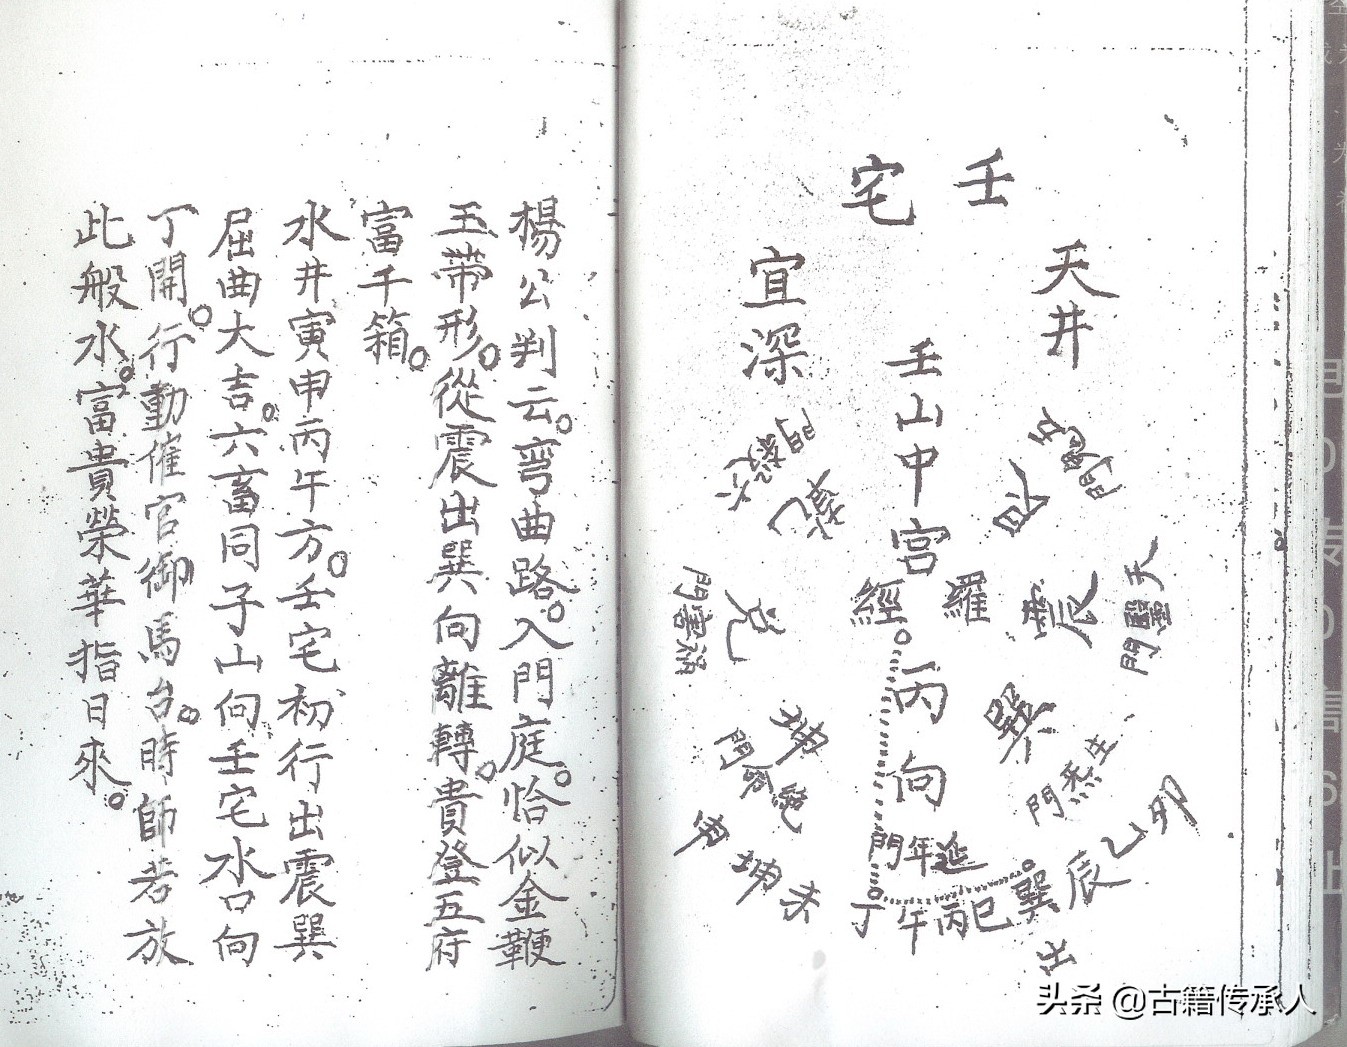 壬宅
天井
宜深
壬山中宮
羅經
丙向
艮
五鬼門
震
天醫門
巽
生炁門
延年門
坤
絕命門
兌
禍害門
乾
六煞門
卯乙辰巽巳丙午丁未坤申
出
楊公判云。彎曲路。入門庭。恰似金鞭
玉帶形。從震出巽向離轉。貴登五府
富千箱。
水井寅申丙午方。壬宅初行出震巽
屈曲大吉。六畜同子山向壬宅水口向
丁開。行動催官御馬台。時師若放
此般水。富貴榮華指日來。
头条 @古籍传承人